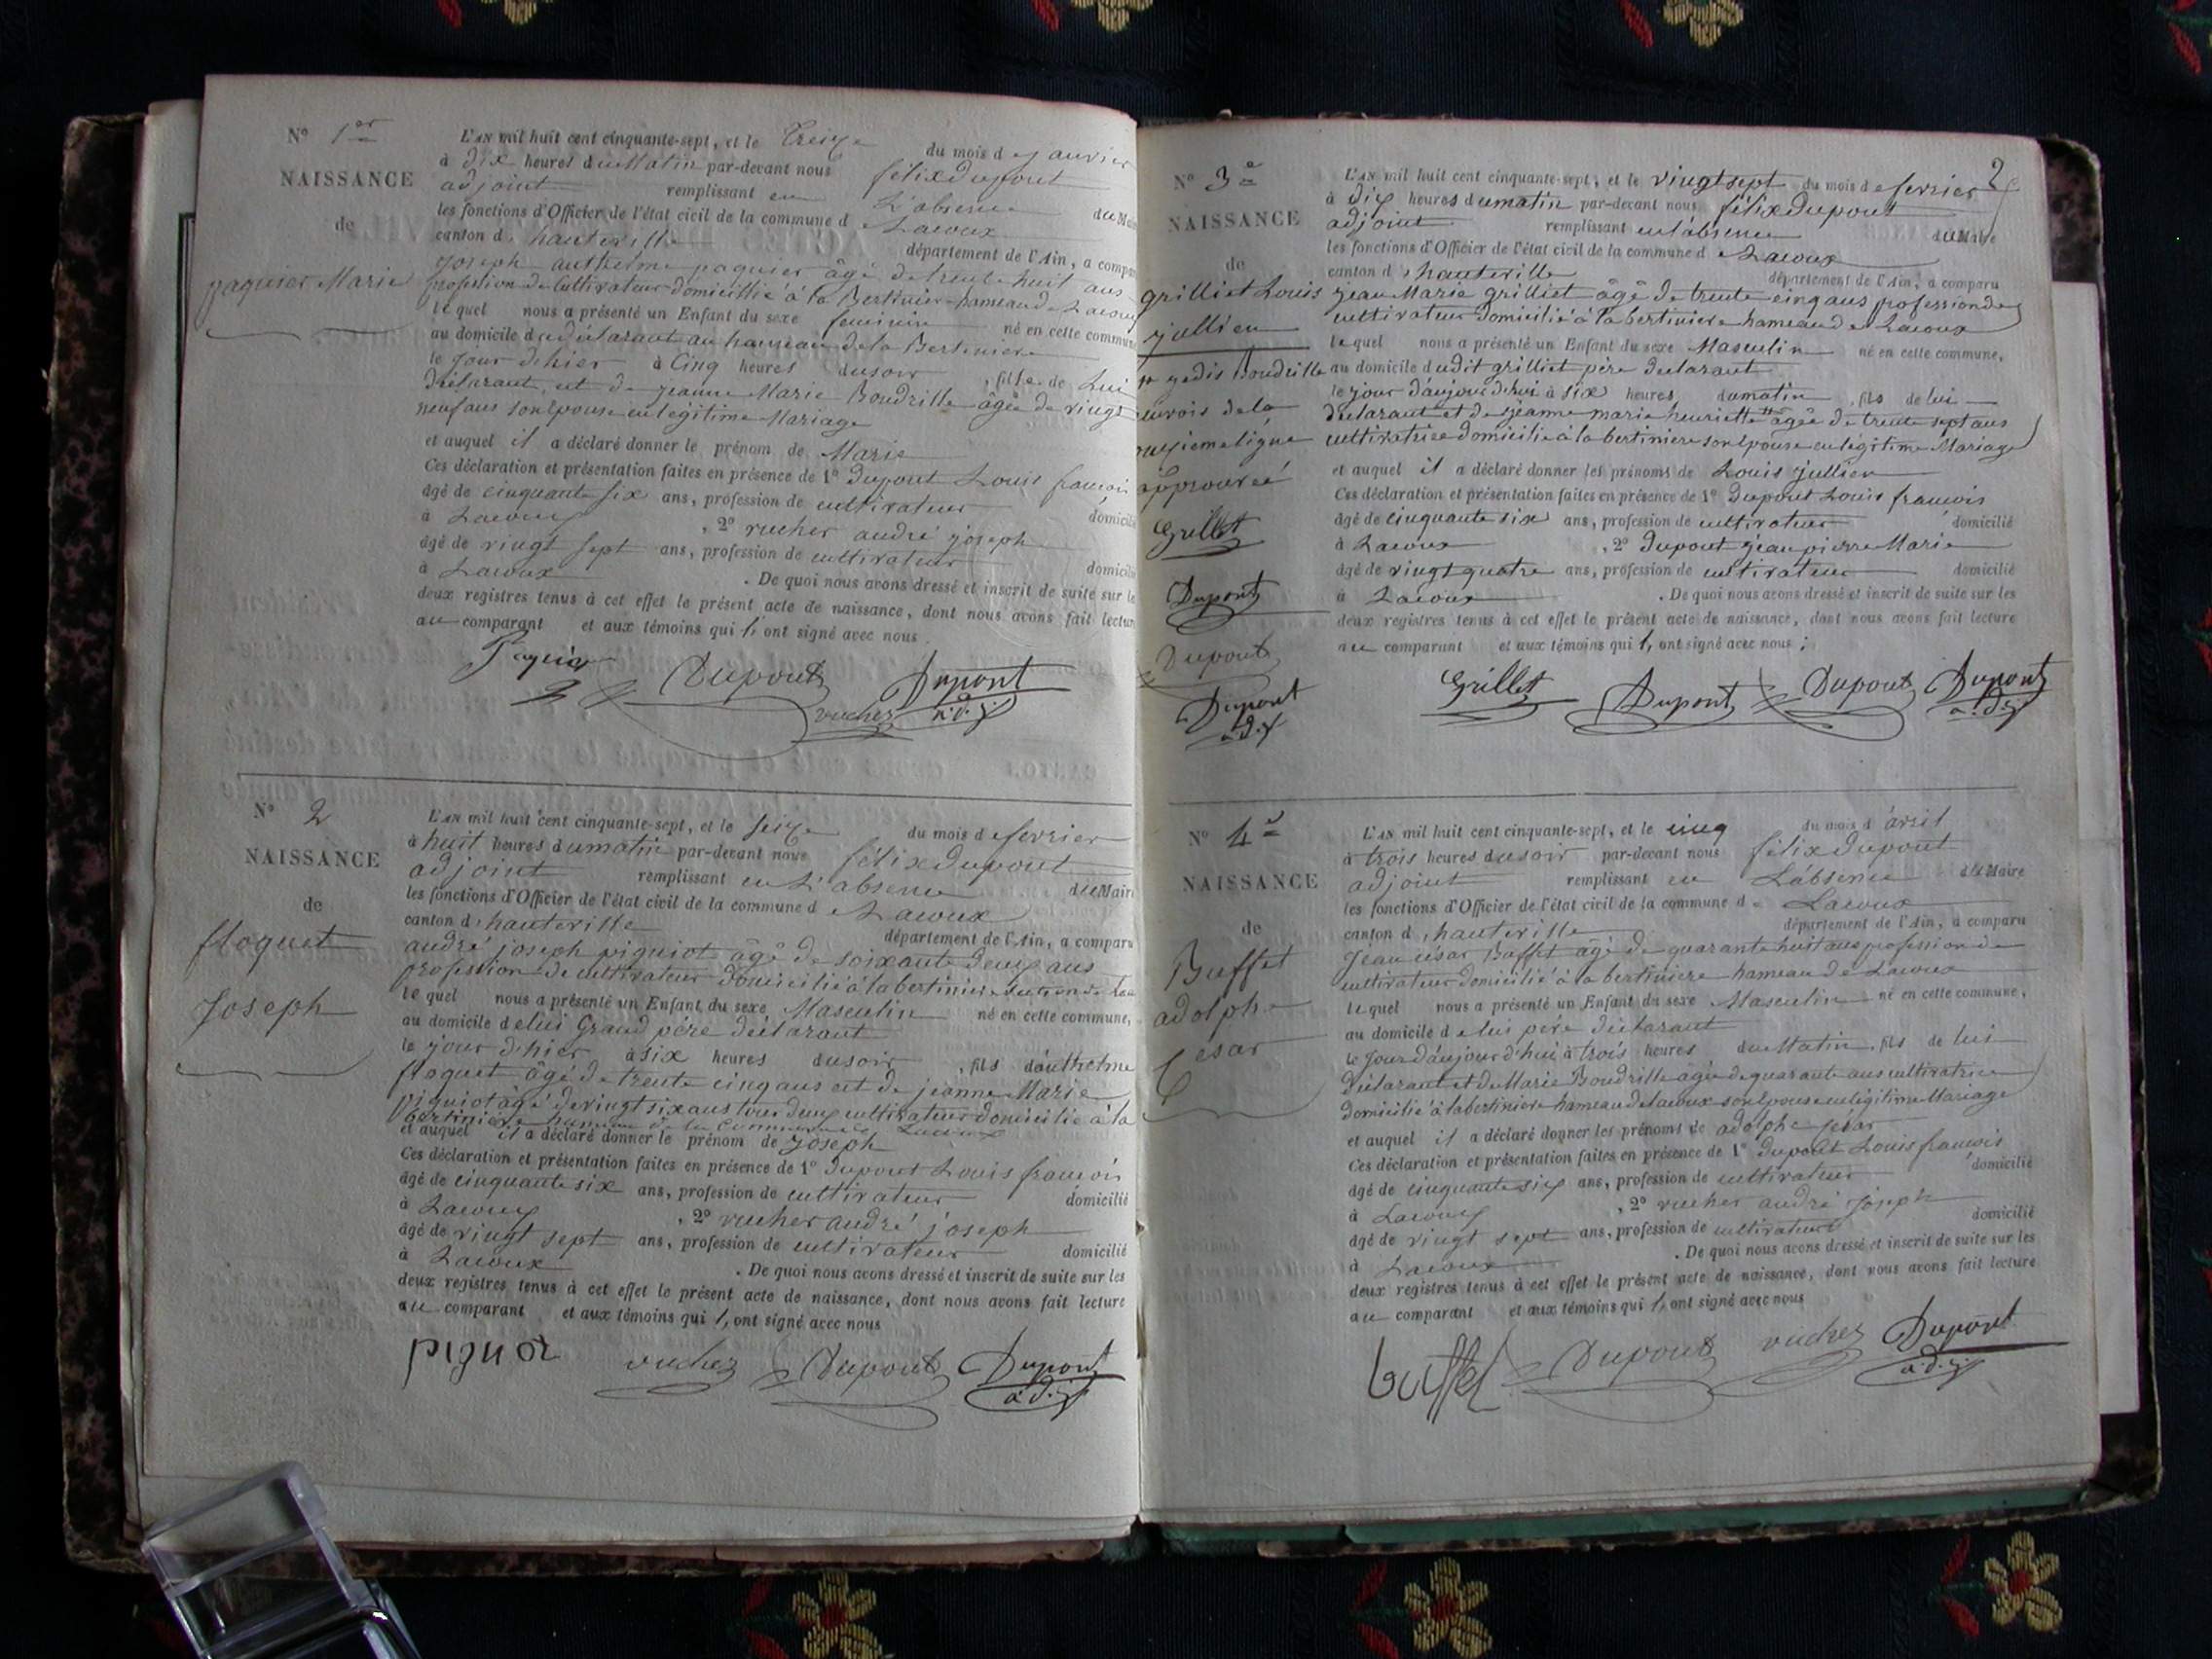 N° 1er
NAISSANCE
de
paquier Marie
L'AN mil huit cent cinquante-sept, et le treize du mois de janvier
à dix heures du Matin par-devant nous félix dupont
adjoint remplissant en L'absence du Maire
les fonctions d'Officier de l'état civil de la commune de Lacoux
canton d'hauteville département de l'Ain, a comparu
joseph anthelme paquier âgé de trente huit ans
profession de cultivateur domicillié à la Bertinier hameau de Lacoux
lequel nous a présenté un Enfant du sexe feminin né en cette commune
au domicile du déclarant au hameau de la Bertiniere
le jour d'hier à Cinq heures du soir, fille de Lui
déclarant, et de jeanne Marie Boudrille âgée de vingt
neuf ans son épouse en legitime Mariage
et auquel il a déclaré donner le prénom de Marie
Ces déclaration et présentation faites en présence de 1° dupont Louis francois
âgé de cinquante six ans, profession de cultivateur domicilié
à Lacoux, 2° rucher andré joseph
âgé de vingt sept ans, profession de cultivateur domicilié
à Lacoux. De quoi nous avons dressé et inscrit de suite sur le
deux registres tenus à cet effet le présent acte de naissance, dont nous avons fait lecture
au comparant et aux témoins qui l, ont signé avec nous
Paquier Dupont rucher Dupont adj
N° 2
NAISSANCE
de
floquet
Joseph
L'AN mil huit cent cinquante-sept, et le seize du mois de fevrier
à huit heures du matin par-devant nous félix dupont
adjoint remplissant en L'absence du Maire
les fonctions d'Officier de l'état civil de la commune de Lacoux
canton d'hauteville département de l'Ain, a comparu
andré joseph piquiot âgé de soixante deux ans
profession de cultivateur domicilié à la bertiniere
lequel nous a présenté un Enfant du sexe Masculin né en cette commune,
au domicile de lui Grand père déclarant
le jour d'hier à six heures du soir, fils d'anthelme
floquet âgé de trente cinq ans et de jeanne Marie
piquiot âgé de vingt six ans tous deux cultivateur domicilié à la
bertiniere hameau de la commune de Lacoux
et auquel il a déclaré donner le prénom de joseph
Ces déclaration et présentation faites en présence de 1° dupont Louis francois
âgé de cinquante six ans, profession de cultivateur domicilié
à Lacoux, 2° rucher andré joseph
âgé de vingt sept ans, profession de cultivateur domicilié
à Lacoux. De quoi nous avons dressé et inscrit de suite sur les
deux registres tenus à cet effet le présent acte de naissance, dont nous avons fait lecture
au comparant et aux témoins qui l, ont signé avec nous
piguot rucher Dupont Dupont adj
2
N° 3e
NAISSANCE
de
grilliet Louis
jullien
gedis Boudrille
renvois de la
onzieme ligne
approuvéé
Grillet
Dupont
Dupont
Dupont
adj
L'AN mil huit cent cinquante-sept, et le vingt sept du mois de fevrier
à dix heures du matin par-devant nous félix dupont
adjoint remplissant en l'absence du Maire
les fonctions d'Officier de l'état civil de la commune de Lacoux
canton d'hauteville département de l'Ain, a comparu
jean Marie grilliet âgé de trente cinq ans profession de
cultivateur domicilié à la bertiniere hameau de Lacoux
lequel nous a présenté un Enfant du sexe Masculin né en cette commune,
au domicile dudit grilliet père déclarant
le jour d'aujourd'hui à six heures du matin, fils de lui
déclarant et de jeanne marie henriette # âgée de trente sept ans
cultivatrice domicilié à la bertiniere son épouse en légitime Mariage
et auquel il a déclaré donner les prénoms de Louis jullien
Ces déclaration et présentation faites en présence de 1° dupont Louis francois
âgé de cinquante six ans, profession de cultivateur domicilié
à Lacoux, 2° dupont jean pierre Marie
âgé de vingt quatre ans, profession de cultivateur domicilié
à Lacoux. De quoi nous avons dressé et inscrit de suite sur les
deux registres tenus à cet effet le présent acte de naissance, dont nous avons fait lecture
au comparant et aux témoins qui l, ont signé avec nous ;
Grillet Dupont Dupont Dupont adj
N° 4e
NAISSANCE
de
Buffet
adolphe
César
L'AN mil huit cent cinquante-sept, et le cinq du mois d'avril
à trois heures du soir par-devant nous félix dupont
adjoint remplissant en L'absence du Maire
les fonctions d'Officier de l'état civil de la commune de Lacoux
canton d'hauteville département de l'Ain, a comparu
Jean césar Buffet âgé de quarante huit ans profession de
cultivateur domicilié à la bertiniere hameau de Lacoux
lequel nous a présenté un Enfant du sexe Masculin né en cette commune,
au domicile de lui père déclarant
le jour d'aujourd'hui à trois heures du Matin, fils de lui
déclarant et de Marie Boudrille âgée de quarante ans cultivatrice
domicilié à la bertiniere hameau de lacoux son épouse en légitime Mariage
et auquel il a déclaré donner les prénoms de adolphe césar
Ces déclaration et présentation faites en présence de 1° dupont Louis francois
âgé de cinquante six ans, profession de cultivateur domicilié
à Lacoux, 2° rucher andré joseph
âgé de vingt sept ans, profession de cultivateur domicilié
à Lacoux. De quoi nous avons dressé et inscrit de suite sur les
deux registres tenus à cet effet le présent acte de naissance, dont nous avons fait lecture
au comparant et aux témoins qui l, ont signé avec nous
buffet Dupont rucher Dupont adj